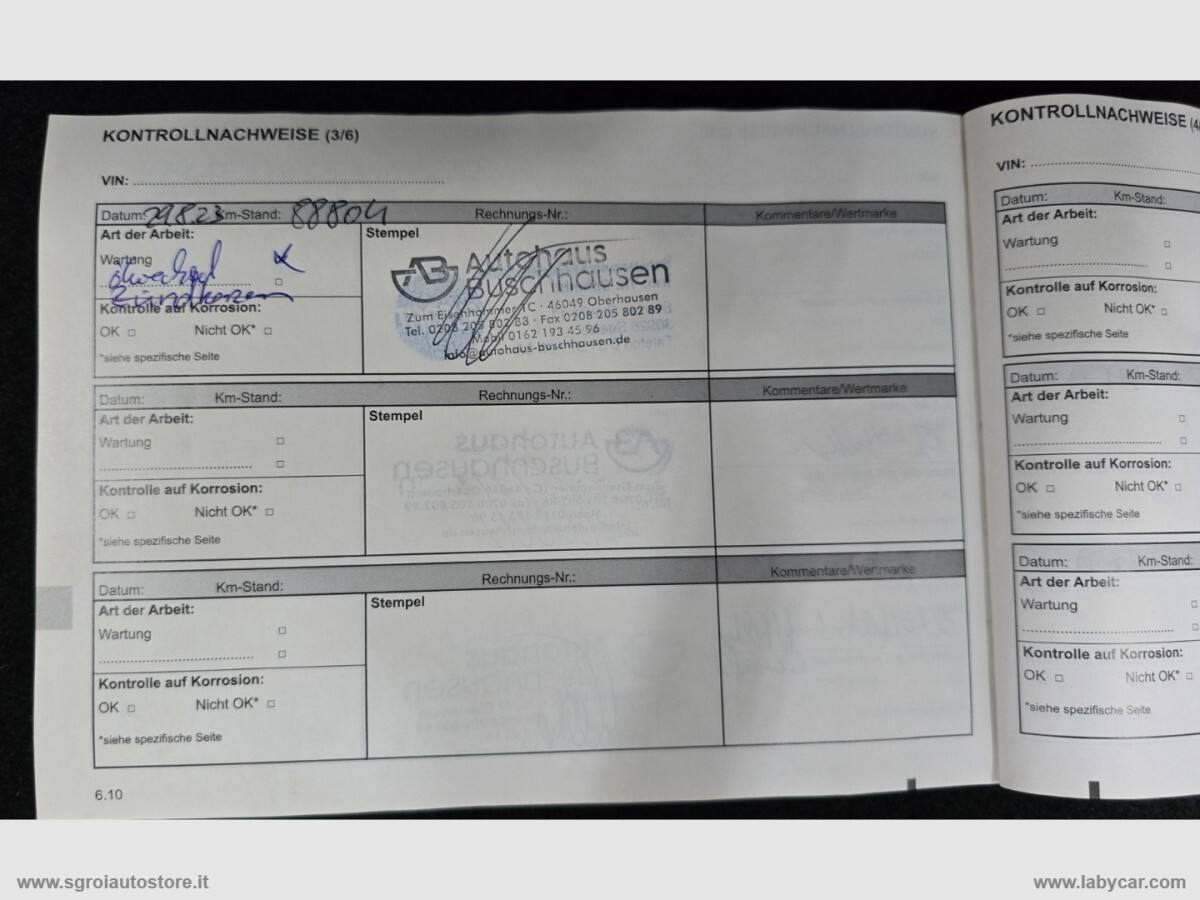 KONTROLLNACHWEISE (3/6)
VIN:
Datum: 29.8.23 Km-Stand: 88804 Rechnungs-Nr.: Kommentare/Wertmarke
Art der Arbeit:
Wartung
Ölwechsel
Zündkerzen
Kontrolle auf Korrosion:
OK Nicht OK*
*siehe spezifische Seite
Stempel
AB Autohaus
Buschhausen
Zum Eisenhammer 1C · 46049 Oberhausen
Tel. 0208 205 802 83 · Fax 0208 205 802 89
Mobil 0162 193 45 96
info@autohaus-buschhausen.de
Datum: Km-Stand: Rechnungs-Nr.: Kommentare/Wertmarke
Art der Arbeit:
Wartung
Kontrolle auf Korrosion:
OK Nicht OK*
*siehe spezifische Seite
Stempel
Datum: Km-Stand: Rechnungs-Nr.: Kommentare/Wertmarke
Art der Arbeit:
Wartung
Kontrolle auf Korrosion:
OK Nicht OK*
*siehe spezifische Seite
Stempel
6.10
KONTROLLNACHWEISE (4/
VIN:
Datum: Km-Stand:
Art der Arbeit:
Wartung
Kontrolle auf Korrosion:
OK Nicht OK*
*siehe spezifische Seite
Datum: Km-Stand:
Art der Arbeit:
Wartung
Kontrolle auf Korrosion:
OK Nicht OK*
*siehe spezifische Seite
Datum: Km-Stand:
Art der Arbeit:
Wartung
Kontrolle auf Korrosion:
OK Nicht OK*
*siehe spezifische Seite
www.sgroiautostore.it
www.labycar.com